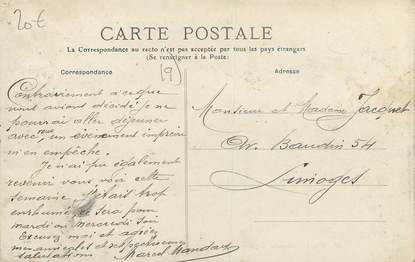 20€
CARTE POSTALE
La Correspondance au recto n'est pas acceptée par tous les pays étrangers
(Se renseigner à la Poste)
Correspondance
(9)
Adresse
Contrairement à ce que
nous avions décidé, je ne
pourrai aller déjeuner
avec vous, un événement imprévu
m'en empêche.
Je n'ai pu également
revenir vous voir cette
semaine. J'étais trop
enrhumé, ce sera pour
mardi ou mercredi soir
Excusez moi et agréez
mes amicales et respectueuses
salutations
Marcel
Monsieur et Madame Jacquet
Av. Baudin 54
Limoges